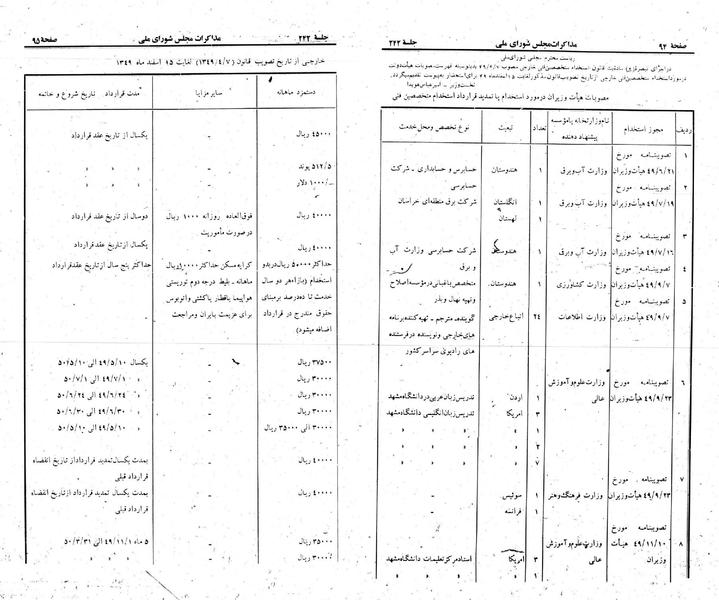 صفحه ۹۴
مذاکرات مجلس شورای ملی
جلسه ۲۴۲
ریاست محترم مجلس شورای ملی
مصوبات هیأت وزیران در مورد استخدام یا تمدید قرارداد استخدام متخصصین فنی
ردیف
مجوز استخدام
نام وزارتخانه یا مؤسسه پیشنهاد دهنده
تعداد
تبعیت
نوع تخصص و محل خدمت
۱ تصویبنامه مورخ
۴۹/۶/۲۱ هیأت وزیران وزارت آب و برق ۱ هندوستان حسابرس و حسابداری ـ شرکت حسابرسی
۲ تصویبنامه مورخ
۴۹/۷/۱۹ هیأت وزیران وزارت آب و برق ۱ انگلستان شرکت برق منطقه‌ای خراسان
۱ لهستان
۳ تصویبنامه مورخ
۴۹/۷/۱۶ هیأت وزیران وزارت آب و برق ۱ هندوستان شرکت حسابرسی وزارت آب و برق
۴ تصویبنامه مورخ
۴۹/۹/۷ هیأت وزیران وزارت کشاورزی ۱ هندوستان متخصص باغبانی در مؤسسه اصلاح و تهیه نهال و بذر
۵ تصویبنامه مورخ
۴۹/۹/۷ هیأت وزیران وزارت اطلاعات ۲۴ اتباع خارجی گوینده ـ مترجم ـ تهیه کننده برنامه
های خارجی و نویسنده در فرستنده
های رادیوئی سراسر کشور
۶ تصویبنامه مورخ وزارت علوم و آموزش
۴۹/۹/۲۳ هیأت وزیران عالی ۱ اردن تدریس زبان عربی در دانشگاه مشهد
۳ امریکا تدریس زبان انگلیسی دانشگاه مشهد
۱ » » » »
۲ » » » »
۷ » » » »
۷ تصویبنامه مورخ
۴۹/۹/۲۳ هیأت وزیران وزارت فرهنگ و هنر ۱ سوئیس -
۱ فرانسه -
تصویبنامه مورخ
۸ ۴۹/۱۱/۱۰ هیأت وزارت علوم و آموزش
وزیران عالی ۳ امریکا استاد مرکز تعلیمات دانشگاه مشهد
۱ » » »
جلسه ۲۴۲
مذاکرات مجلس شورای ملی
صفحه ۹۵
خارجی از تاریخ تصویب قانون (۱۳۴۹/۴/۷) لغایت ۱۵ اسفند ماه ۱۳۴۹
دستمزد ماهانه
سایر مزایا
مدت قرارداد تاریخ شروع و خاتمه
۴۵۰۰۰ ریال - یکسال از تاریخ عقد قرارداد
۵۱۲/۵ پوند - » » »
۱۰۰۰/ـ دلار - » » »
۴۰۰۰۰ ریال فوق‌العاده روزانه ۱۰۰۰ ریال دو سال از تاریخ عقد قرارداد
در صورت مأموریت
۴۰۰۰۰ ریال - یکسال از تاریخ عقد قرارداد
حداکثر ۵۰۰۰۰ ریال در بدو کرایه مسکن حداکثر ریال حداکثر پنج سال از تاریخ عقد قرارداد
استخدام (بازاء هر دو سال ماهانه ـ بلیط درجه دوم توریستی
خدمت تا ده درصد برمبنای هواپیما یا قطار یا کشتی و اتوبوس
حقوق مندرج در قرارداد برای عزیمت بایران و مراجعت
اضافه میشود)
۳۷۵۰۰ ریال یکسال ۴۹/۵/۱۰ الی ۵۰/۵/۱۰
۳۰۰۰۰ ریال - » ۴۹/۷/۱ الی ۵۰/۷/۱
۳۰۰۰۰ ریال - » ۴۹/۶/۲۴ الی ۵۰/۶/۲۴
۳۰۰۰۰ ریال - » ۴۹/۶/۳۰ الی ۵۰/۶/۳۰
۳۰۰۰۰ الی ۳۵۰۰۰ ریال - » ۴۹/۵/۱۰ الی ۵۰/۵/۱۰
۴۰۰۰۰ ریال - بمدت یکسال تمدید قرارداد از تاریخ انقضاء
قرارداد قبلی
۴۰۰۰۰ ریال - بمدت یکسال تمدید قرارداد از تاریخ انقضاء
قرارداد قبلی
۳۵۰۰۰ ریال - ۵ ماه ۴۹/۱۱/۱ الی ۵۰/۳/۳۱
۳۰۰۰۰ ریال - » » »